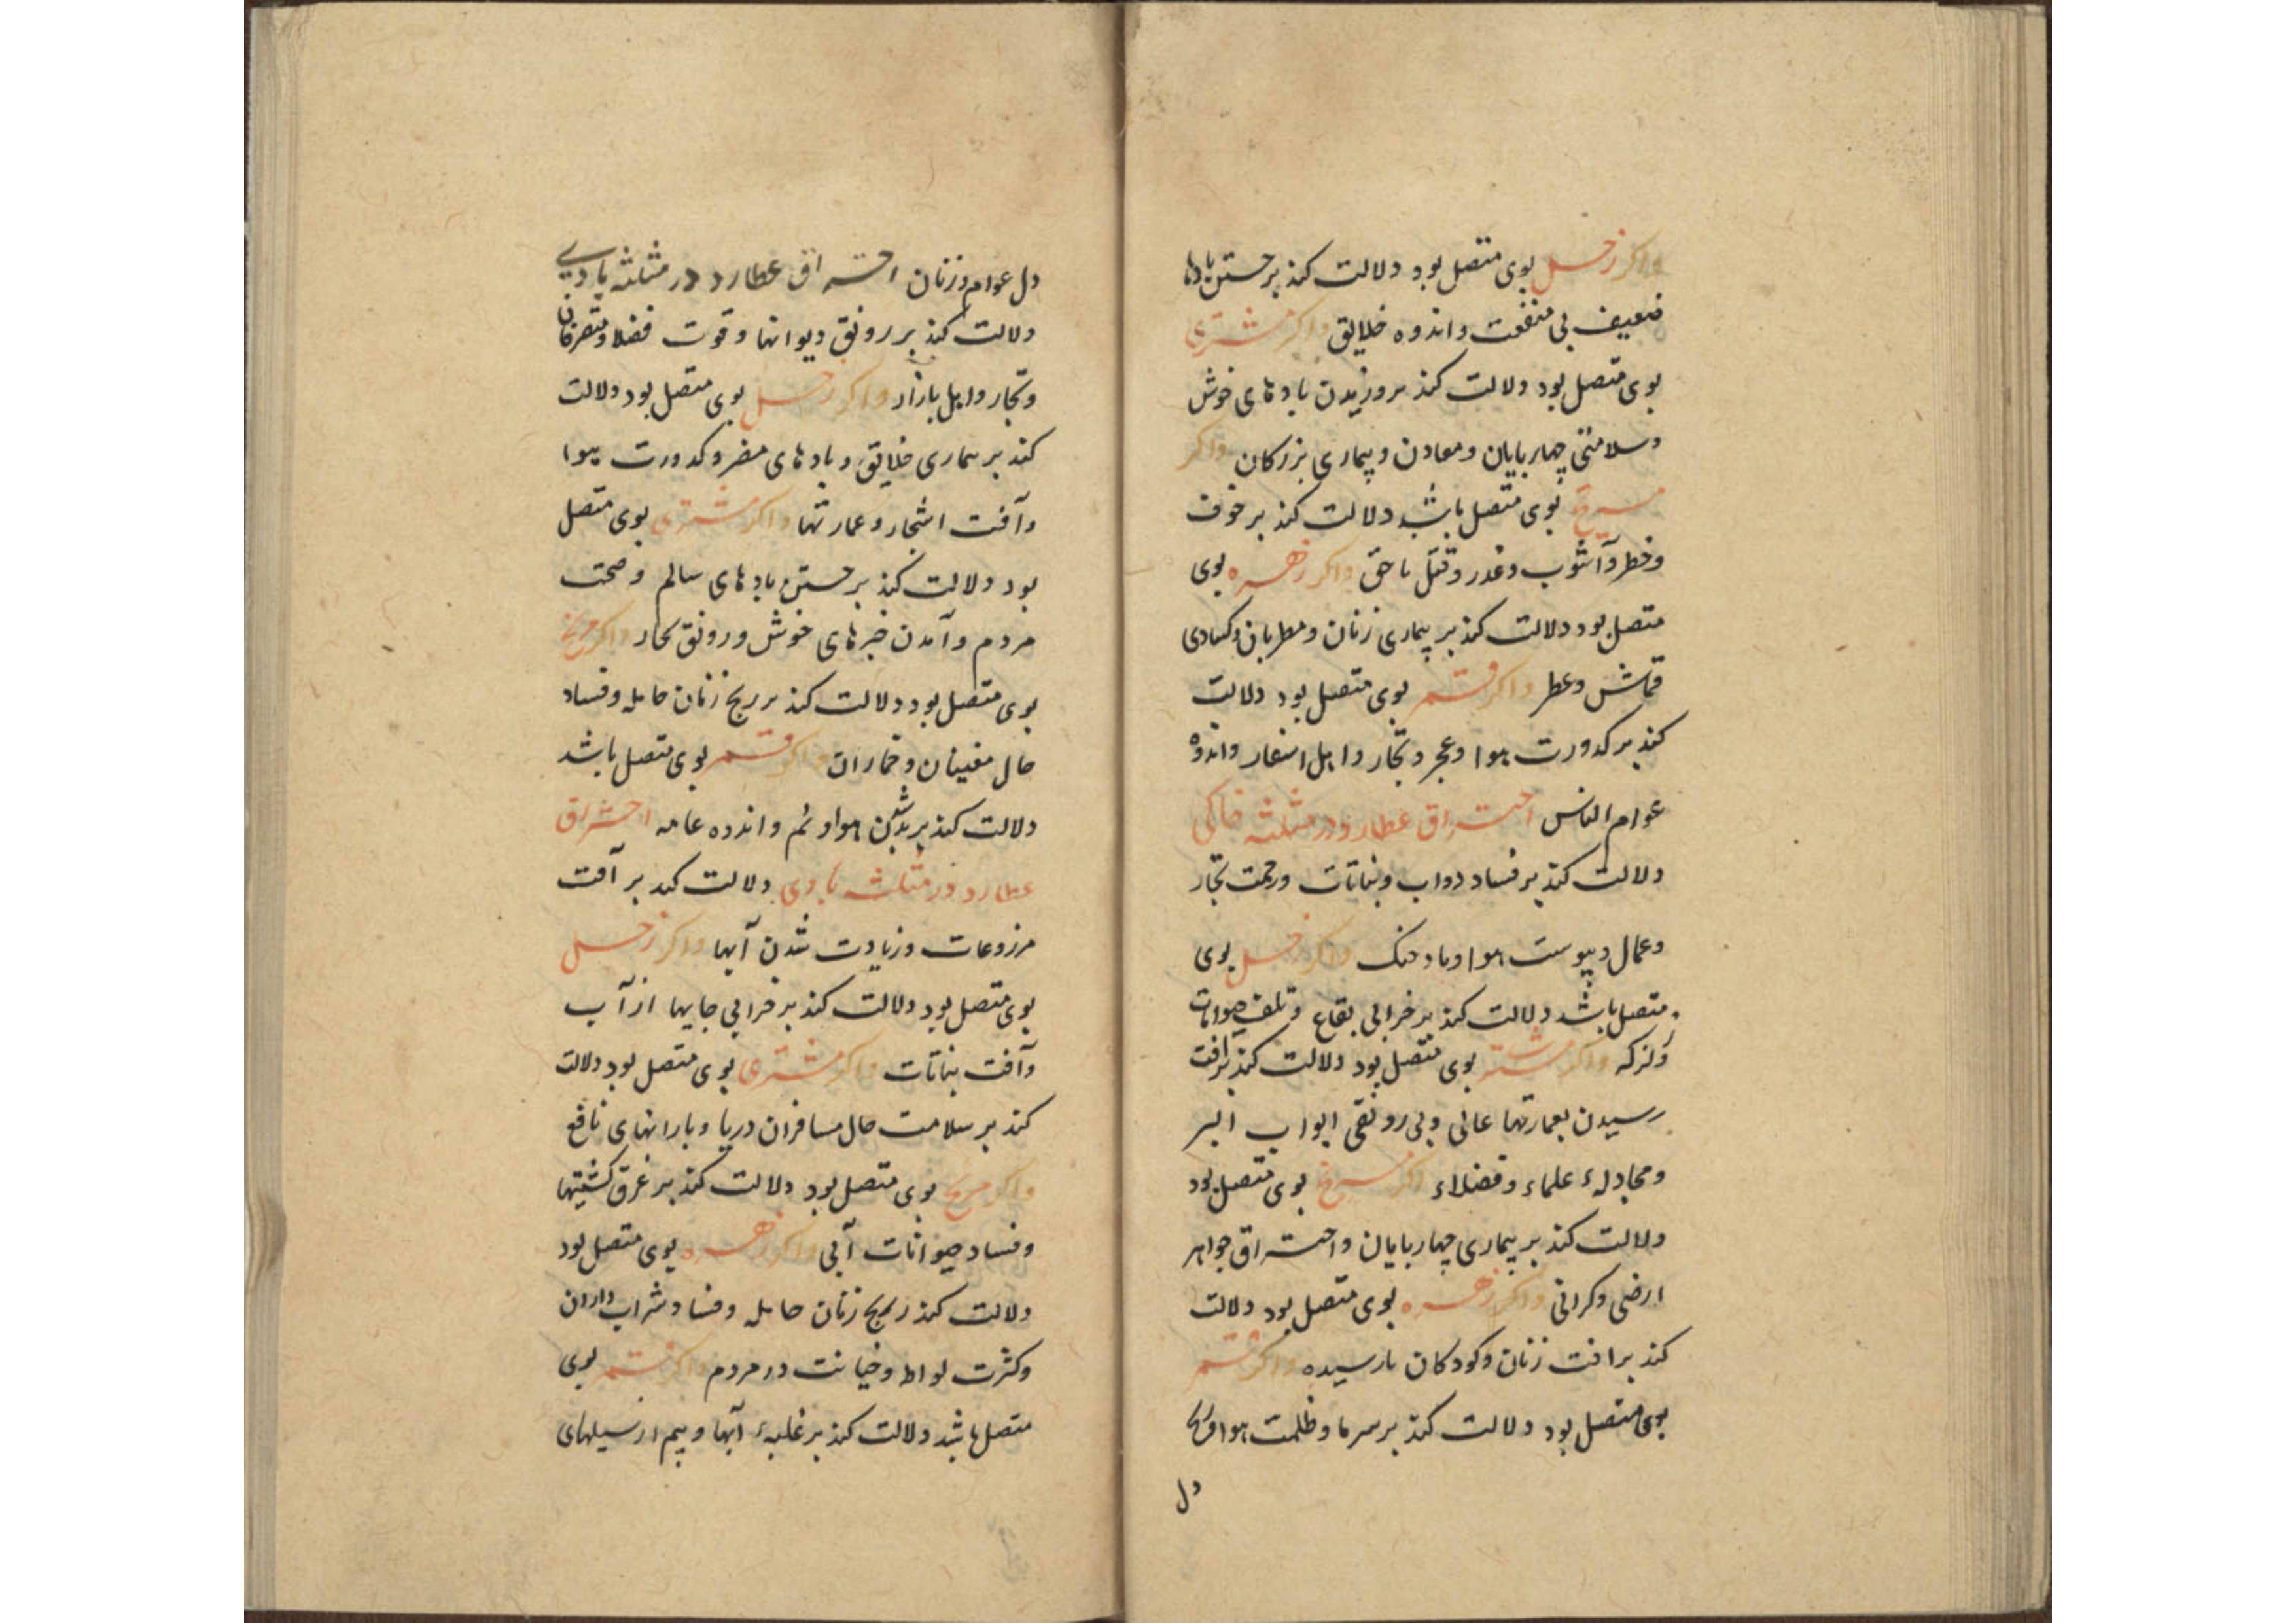 واکر زحل بوی متصل بود دلالت کند بر جستن بادها
ضعیف بی منفعت و اندوه خلایق واکر مشتری
بوی متصل بود دلالت کند بر وزیدن بادهای خوش
وسلامتی چهاربایان ومعادن وبیماری بزرکان واکر
مریخ بوی متصل باشد دلالت کند بر خوف
وخطر وآشوب وغدر وقتل ناحق واکر زهره بوی
متصل بود دلالت کند بر بیماری زنان ومطربان وکسادی
قماش وعطر واکر قمر بوی متصل بود دلالت
کند بر کدورت هوا وعجز وتجار واهل اسفار واندوه
عوام الناس احتراق عطارد در مثلثه خاکی
دلالت کند بر فساد دواب ونباتات وزحمت تجار
وعمال ویبوست هوا وباد خنک واکر زحل بوی
متصل باشد دلالت کند بر خرابی بقاع وتلف حیوانات
ولزکه واکر مشتری بوی متصل بود دلالت کند برافت
رسیدن بعمارتها عالی وبی رونقی ابواب البر
ومجادلهٔ علماء وفضلاء اکر مریخ بوی متصل بود
دلالت کند بر بیماری چهاربایان واحتراق جواهر
ارضی وکرانی واکر زهره بوی متصل بود دلالت
کند برافت زنان وکودکان نارسیده واکر قمر
بوی متصل بود دلالت کند بر سرما وظلمت هوا
دل
دل عوام وزنان احتراق عطارد در مثلثه بادیی
دلالت کند بر رونق دیوانها وقوت فضلا ومتصرفان
وتجار واهل بازار واکر زحل بوی متصل بود دلالت
کند بر بیماری خلایق وبادهای مضر وکدورت هوا
وآفت اشجار وعمارتها واکر مشتری بوی متصل
بود دلالت کند بر جستن بادهای سالم وصحت
مردم وآمدن خبرهای خوش ورونق تجار واکر مریخ
بوی متصل بود دلالت کند بر رنج زنان حامله وفساد
حال مغنیان وخماران واکر قمر بوی متصل باشد
دلالت کند بر بد شدن هوا ونم واندوه عامه احتراق
عطارد در مثلثه بادی دلالت کند بر آفت
مزروعات وزیادت شدن آبها واکر زحل
بوی متصل بود دلالت کند بر خرابی جایها از آب
وآفت نباتات واکر مشتری بوی متصل بود دلالت
کند بر سلامت حال مسافران دریا وبارانهای نافع
واکر مریخ بوی متصل بود دلالت کند بر غرق کشتیها
وفساد حیوانات آبی واکر زهره بوی متصل بود
دلالت کند رنج زنان حامله وفساد شراب داران
وکثرت لواط وخیانت در مردم واکر قمر بوی
متصل باشد دلالت کند بر غلبهٔ آبها وبیم از سیلهای